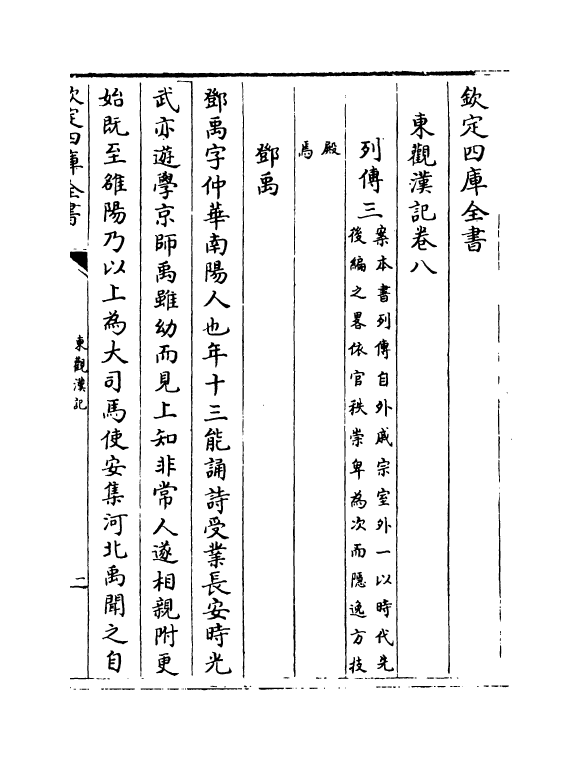 欽定四庫全書
東觀漢記卷八
列傳三案本書列傳自外戚宗室外一以時代先
後編之畧依官秩崇卑為次而隱逸方技
殿
焉
鄧禹
鄧禹字仲華南陽人也年十三能誦詩受業長安時光
武亦遊學京師禹雖幼而見上知非常人遂相親附更
始既至雒陽乃以上為大司馬使安集河北禹聞之自
欽定四庫全書
東觀漢記
二